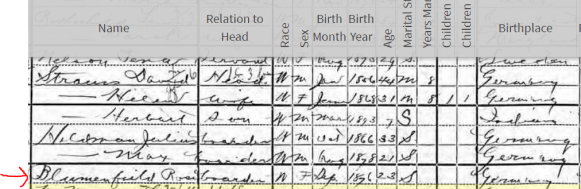 Name Relation to Head Race Sex Birth Month Birth Year Age Marital S Years Mar Children Children Birthplace
Nelson Servant Aug 1870 29 S Sweden
Strauss David Head W M Jan 44 M 8 Germany
— Helen Wife W F Jan 1868 31 M 8 1 1 Germany
— Herbert Son W M Mar 1893 7 S Indiana
Heldman Julius boarder W M Oct 1866 33 S Germany
— Max boarder W M Aug 1878 21 S Germany
Blumenfield Rose boarder W F Sep 1876 23 S Germany